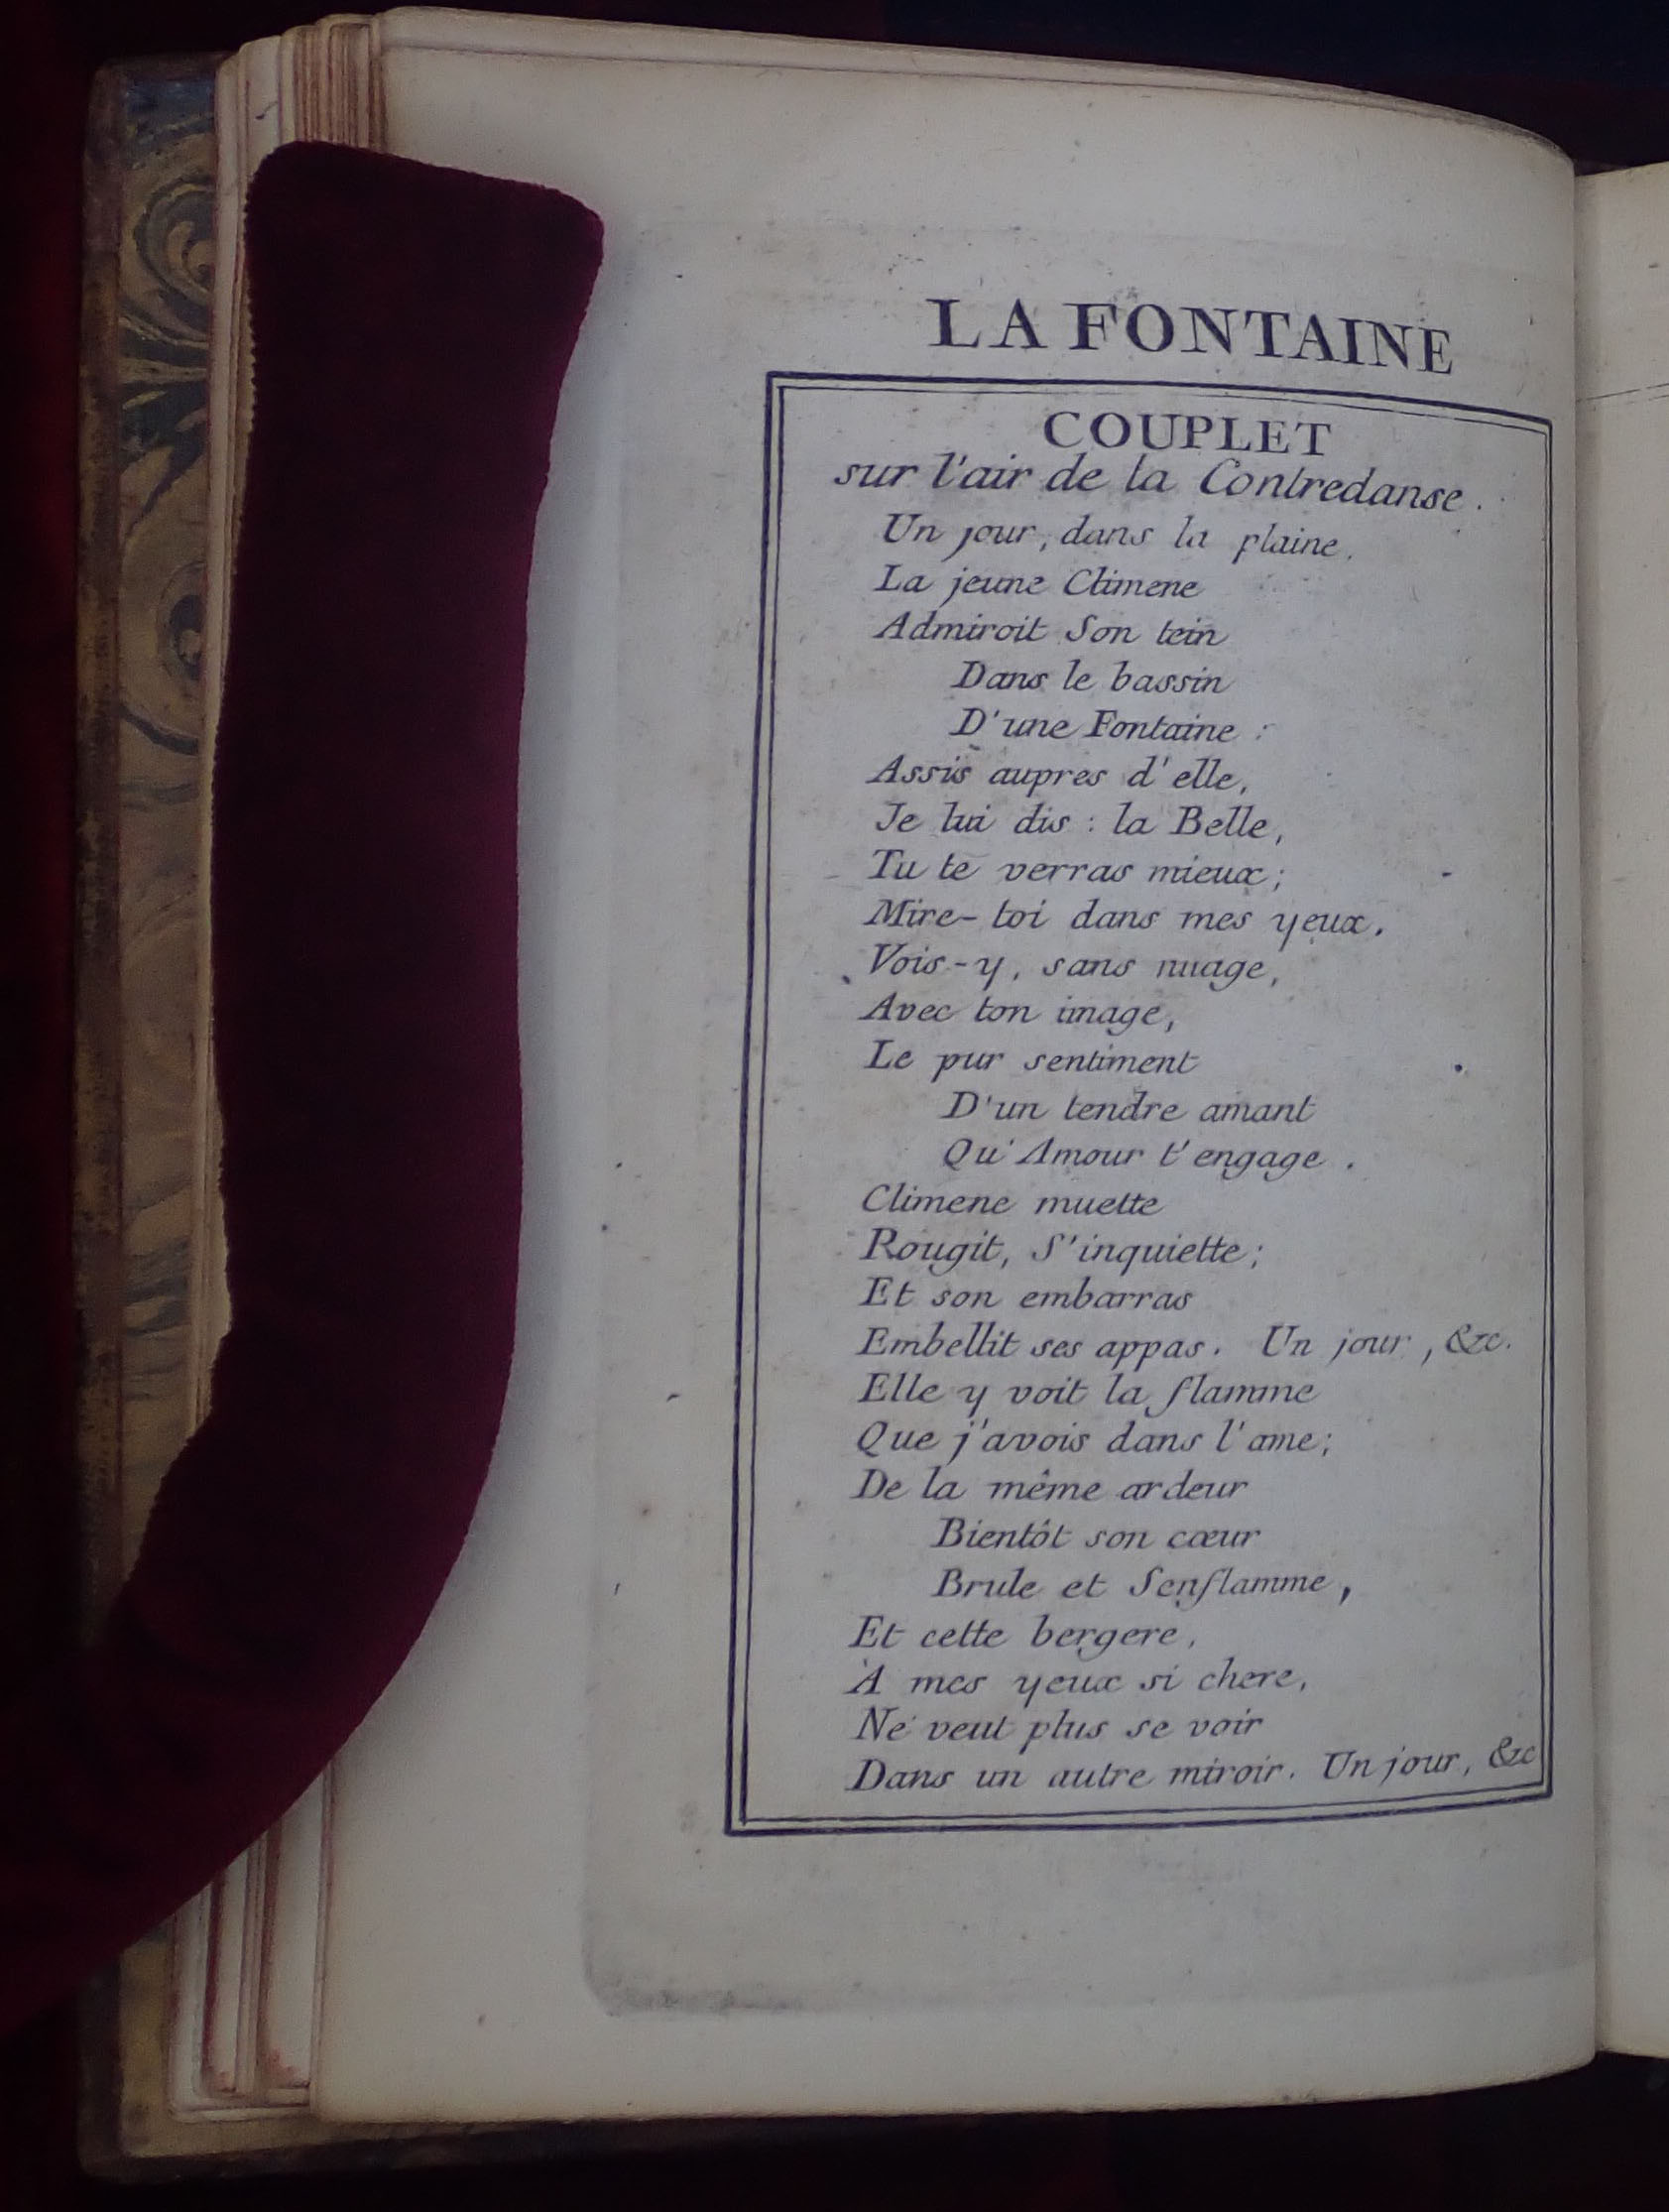 LA FONTAINE
COUPLET
sur l'air de la Contredanse.
Un jour, dans la plaine,
La jeune Climene
Admiroit Son tein
Dans le bassin
D'une Fontaine :
Assis aupres d'elle,
Je lui dis : la Belle,
Tu te verras mieux ;
Mire-toi dans mes yeux.
Vois-y, sans nuage,
Avec ton image,
Le pur sentiment
D'un tendre amant
Qu'Amour t'engage.
Climene muette
Rougit, S'inquiette ;
Et son embarras
Embellit ses appas. Un jour, &c.
Elle y voit la flamme
Que j'avois dans l'ame ;
De la même ardeur
Bientôt son cœur
Brule et Senflamme,
Et cette bergere,
A mes yeux si chere,
Ne veut plus se voir
Dans un autre miroir. Un jour, &c